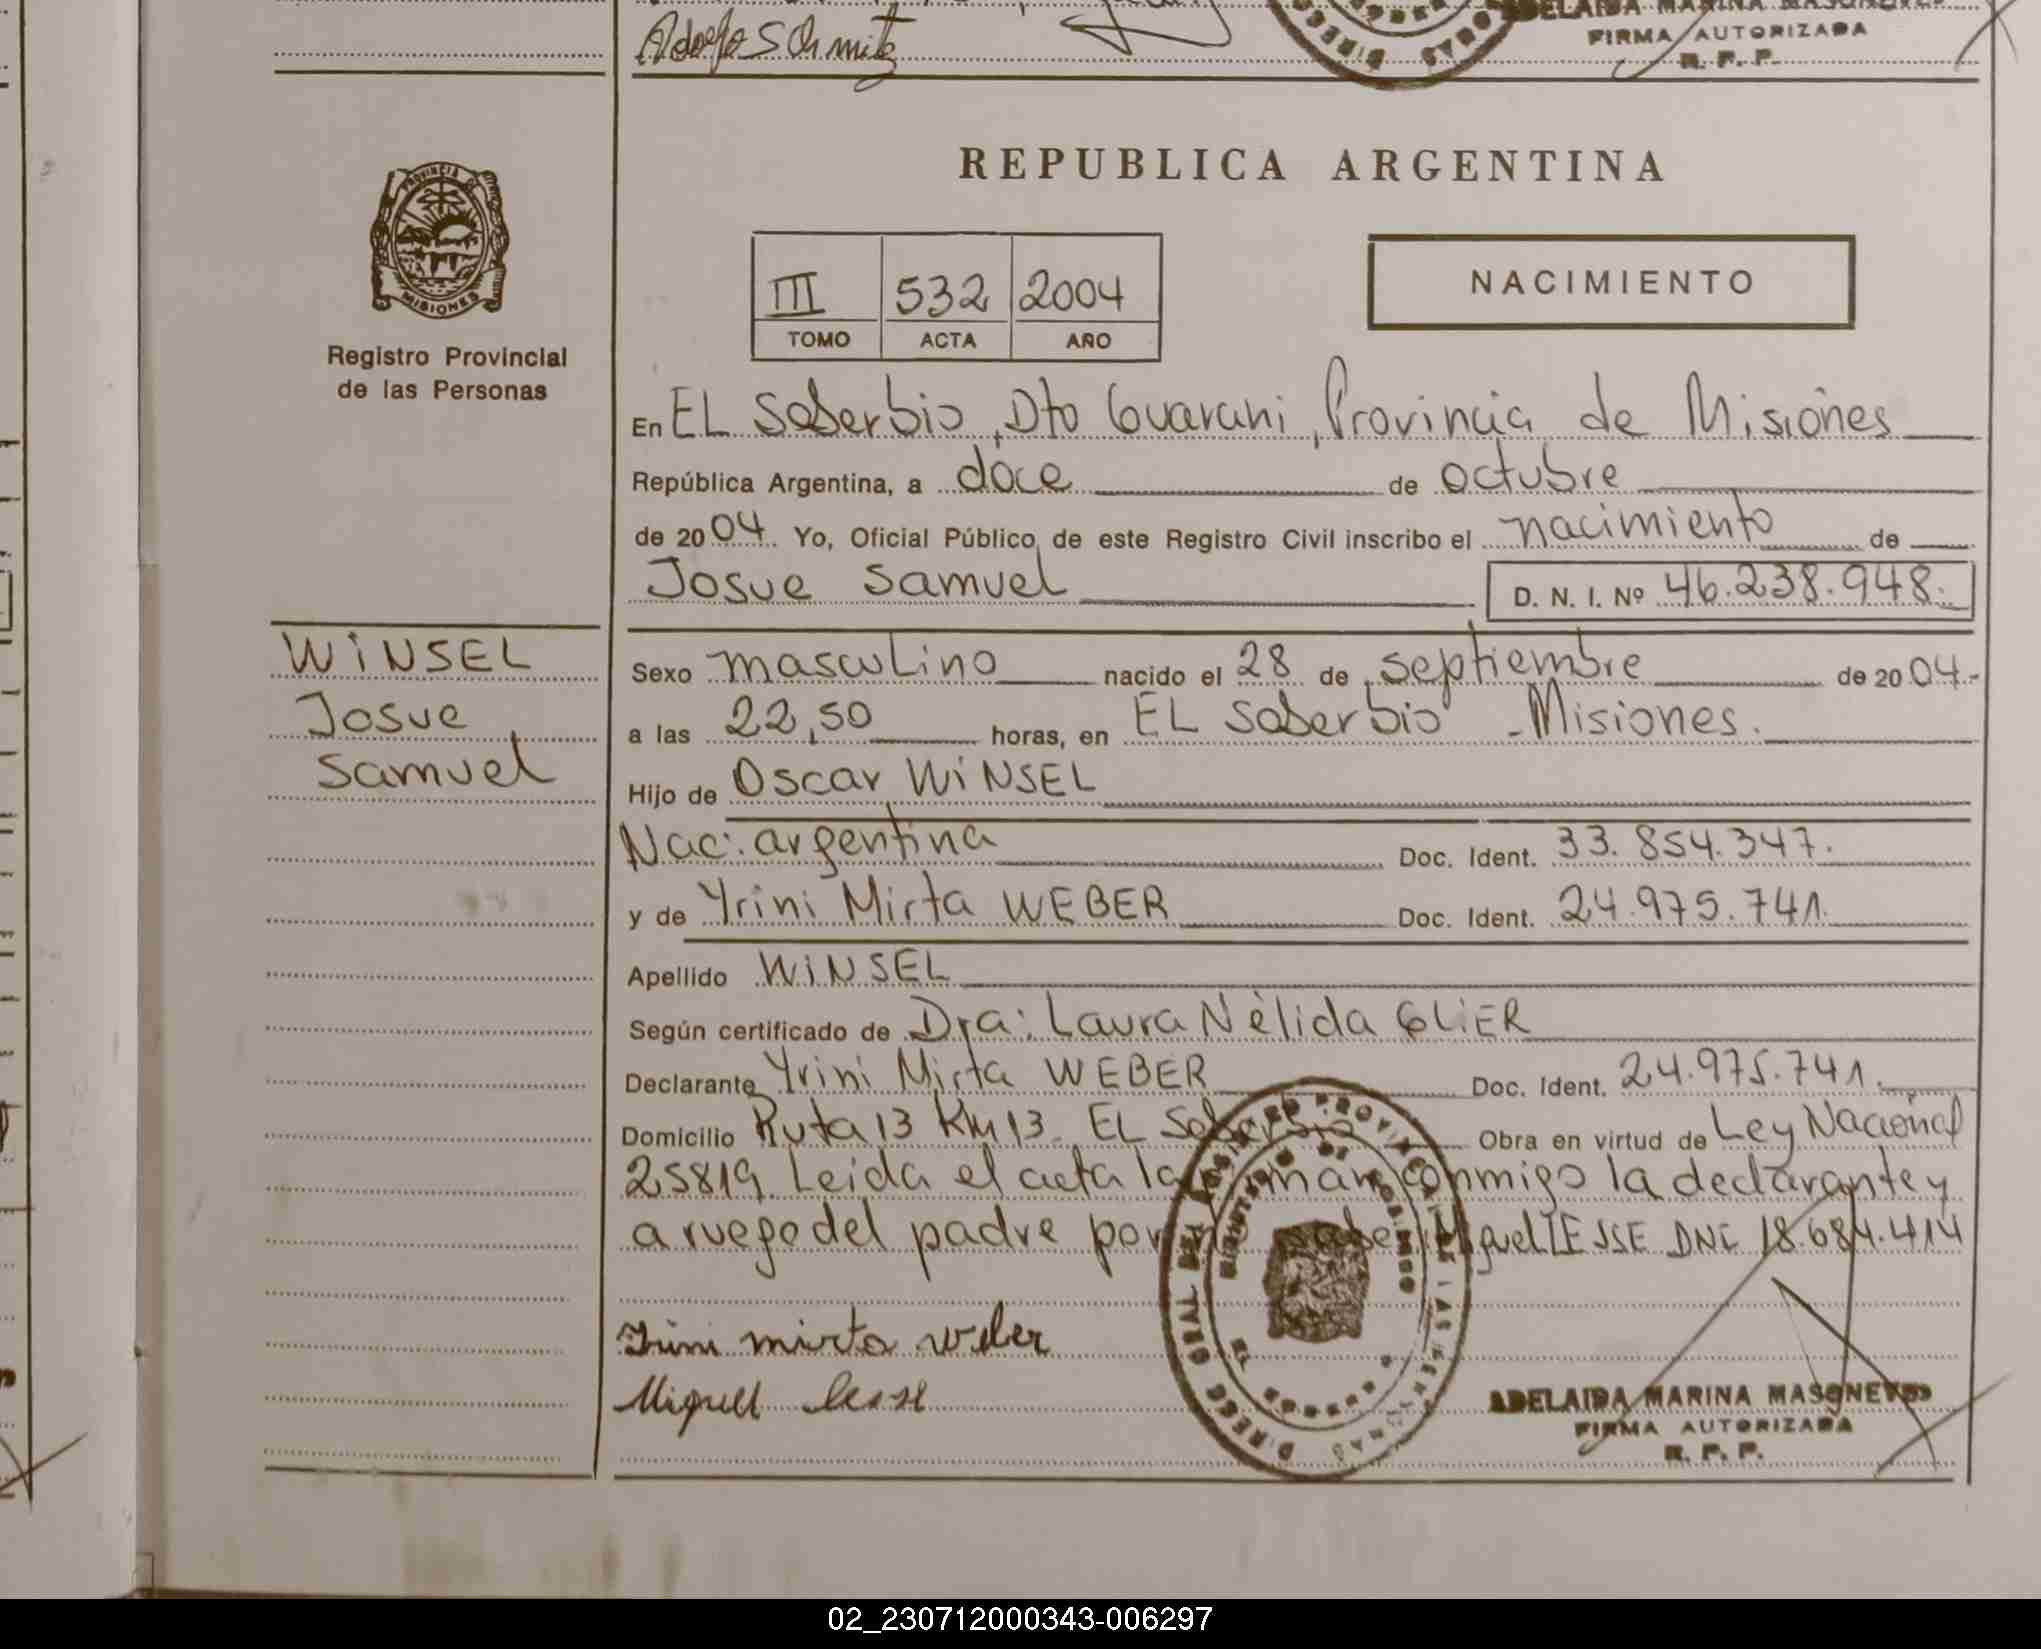 Adolfo Schmitz
ADELAIDA MARINA MASONEVES
FIRMA AUTORIZADA
R. P. P.
PROVINCIA DE
MISIONES
Registro Provincial
de las Personas
REPUBLICA ARGENTINA
III 532 2004
TOMO ACTA AÑO
NACIMIENTO
En EL Soberbio, Dto Guarani, Provincia de Misiones
República Argentina, a doce de octubre
de 2004. Yo, Oficial Público de este Registro Civil inscribo el nacimiento de
Josue Samuel D. N. I. Nº 46.238.948.
WINSEL
Josue
Samuel
Sexo masculino nacido el 28 de septiembre de 2004.-
a las 22,50 horas, en EL Soberbio - Misiones.
Hijo de Oscar WINSEL
Nac: argentina Doc. Ident. 33.854.347.
y de Yrini Mirta WEBER Doc. Ident. 24.975.741.
Apellido WINSEL
Según certificado de Dra: Laura Nélida GLIER
Declarante Yrini Mirta WEBER Doc. Ident. 24.975.741.
Domicilio Ruta 13 Km 13 EL Soberbio Obra en virtud de Ley Nacional
25819 Leida el acta la firman conmigo la declarante y
a ruego del padre por no saber Miguel LESSE DNI 18.684.414
Irini mirta weber
Miguel Lesse
ADELAIDA MARINA MASONEVES
FIRMA AUTORIZADA
R. P. P.
02_230712000343-006297